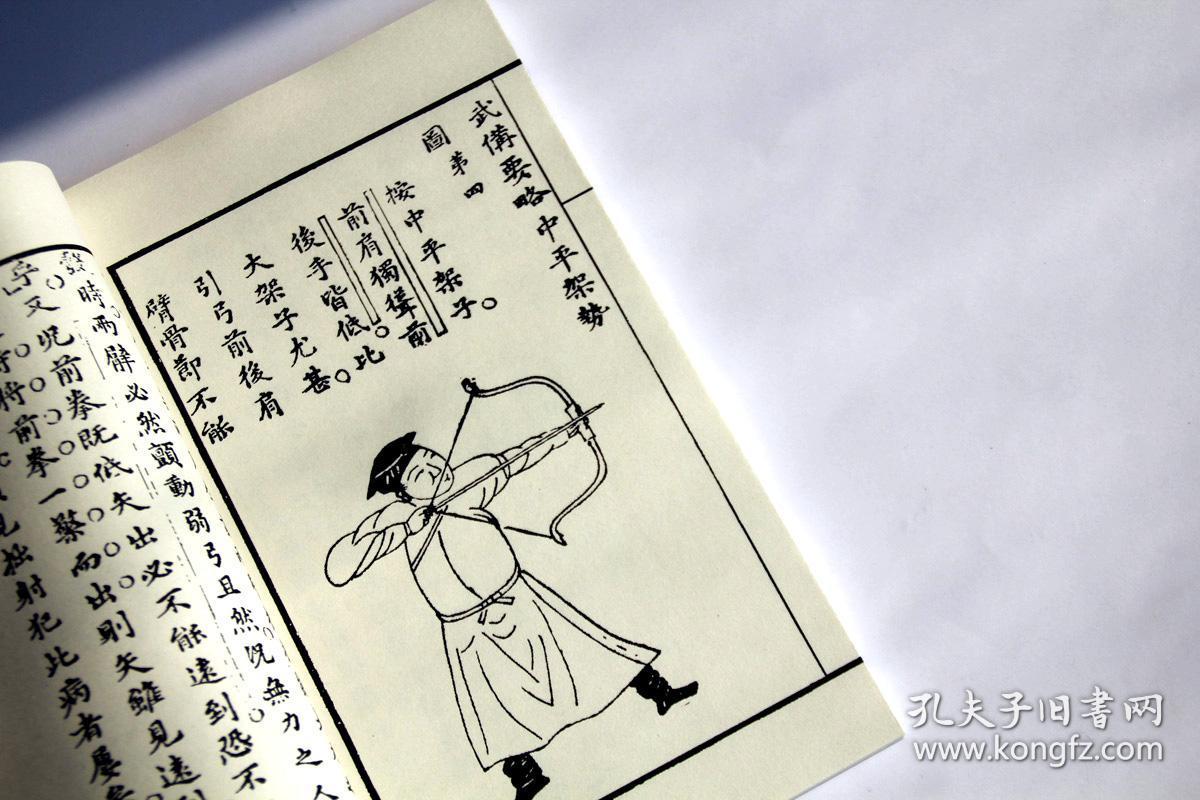 武備要略中平架勢
圖第四
按中平架子。
前肩獨聳前
後手皆低。比
大架子尤甚。
引弓前後肩
臂骨節不能
發時兩臂必然顫動弱弓且然況無力之人
乎又況前拳既低矢出必不能遠到恐不
將前拳一撆而出則矢雖見遠
見拙射犯此病者屢
孔夫子旧書网
www.kongfz.com